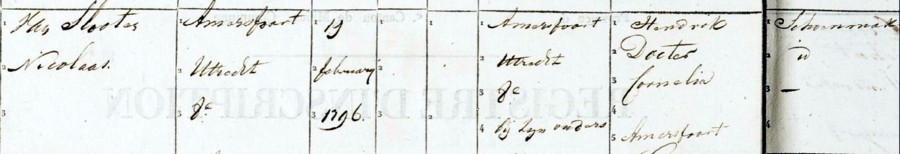 Nicolaas
Amersfoort
Utrecht
dº
19
february
1796
Amersfoort
Utrecht
dº
bij zijn ouders
Hendrik
Cornelia
Amersfoort
Schoenmak
id
—
REGISTRE D'INSCRIPTION